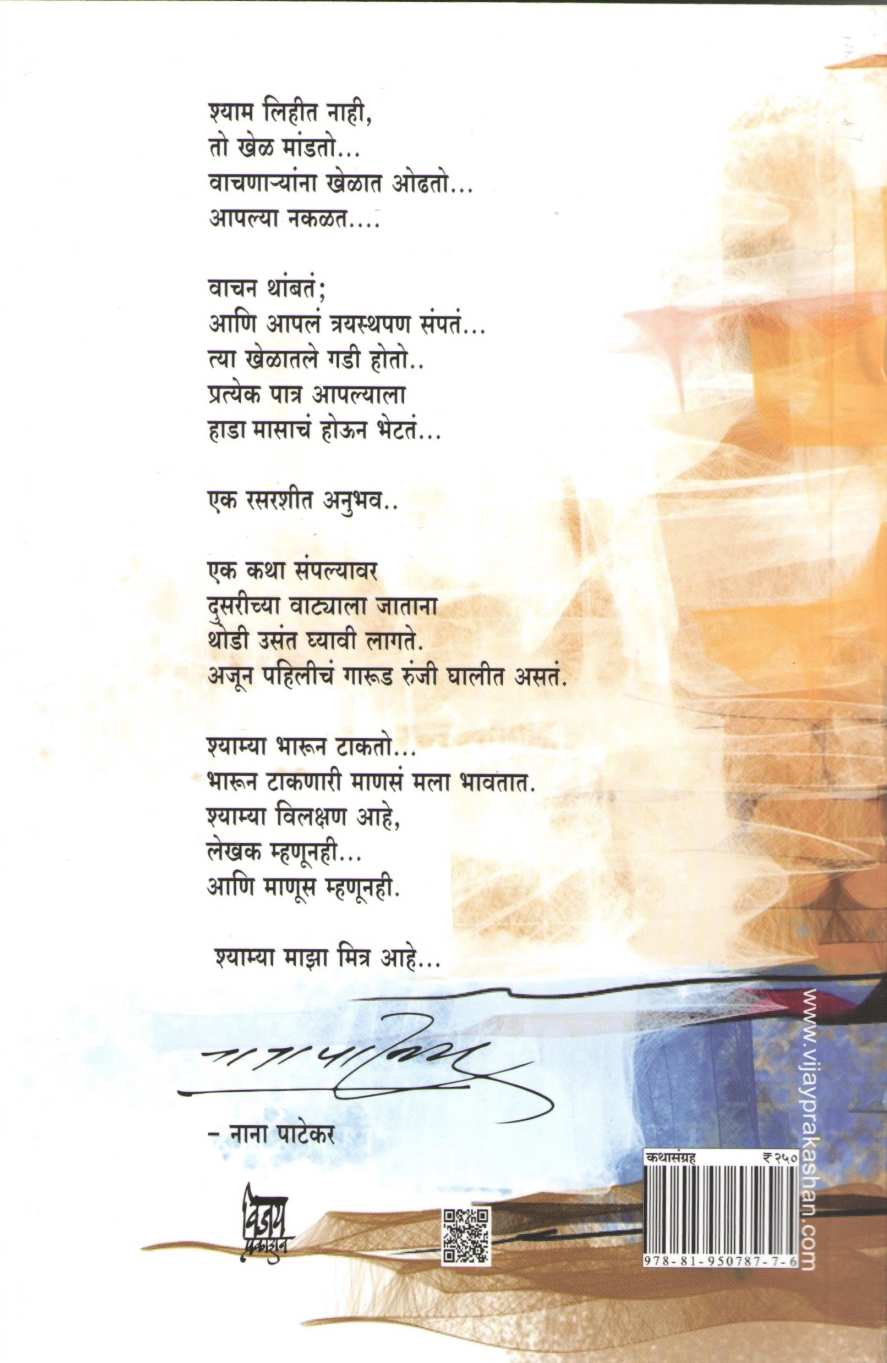 श्याम लिहीत नाही,
तो खेळ मांडतो...
वाचणाऱ्यांना खेळात ओढतो...
आपल्या नकळत....
वाचन थांबतं;
आणि आपलं त्रयस्थपण संपतं...
त्या खेळातले गडी होतो..
प्रत्येक पात्र आपल्याला
हाडा मासाचं होऊन भेटतं...
एक रसरशीत अनुभव..
एक कथा संपल्यावर
दुसरीच्या वाट्याला जाताना
थोडी उसंत घ्यावी लागते.
अजून पहिलीचं गारूड रुंजी घालीत असतं.
श्याम्या भारून टाकतो...
भारून टाकणारी माणसं मला भावतात.
श्याम्या विलक्षण आहे,
लेखक म्हणूनही...
आणि माणूस म्हणूनही.
श्याम्या माझा मित्र आहे...
- नाना पाटेकर
विजय
प्रकाशन
कथासंग्रह ₹ २५०
978-81-950787-7-6
www.vijayprakashan.com